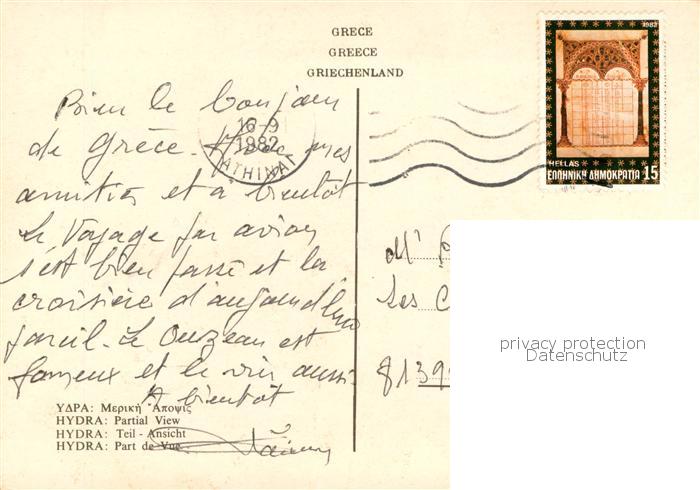 GRECE
GREECE
GRIECHENLAND
1982
HELLAS
ΕΛΛΗΝΙΚΗ ΔΗΜΟΚΡΑΤΙΑ 15
16-9
1982
ATHINAI
Bien le bonjour
de Grèce. Avec mes
amitiés et à bientôt
Le Voyage par avion
s'est bien passé et la
croisière d'aujourd'hui
pareil. Le Ouzeau est
fameux et le vin aussi.
A bientôt
ΥΔΡΑ: Μερική Ἄποψις
HYDRA: Partial View
HYDRA: Teil - Ansicht
HYDRA: Part de Vue
Mr
Les C
8139
privacy protection
Datenschutz